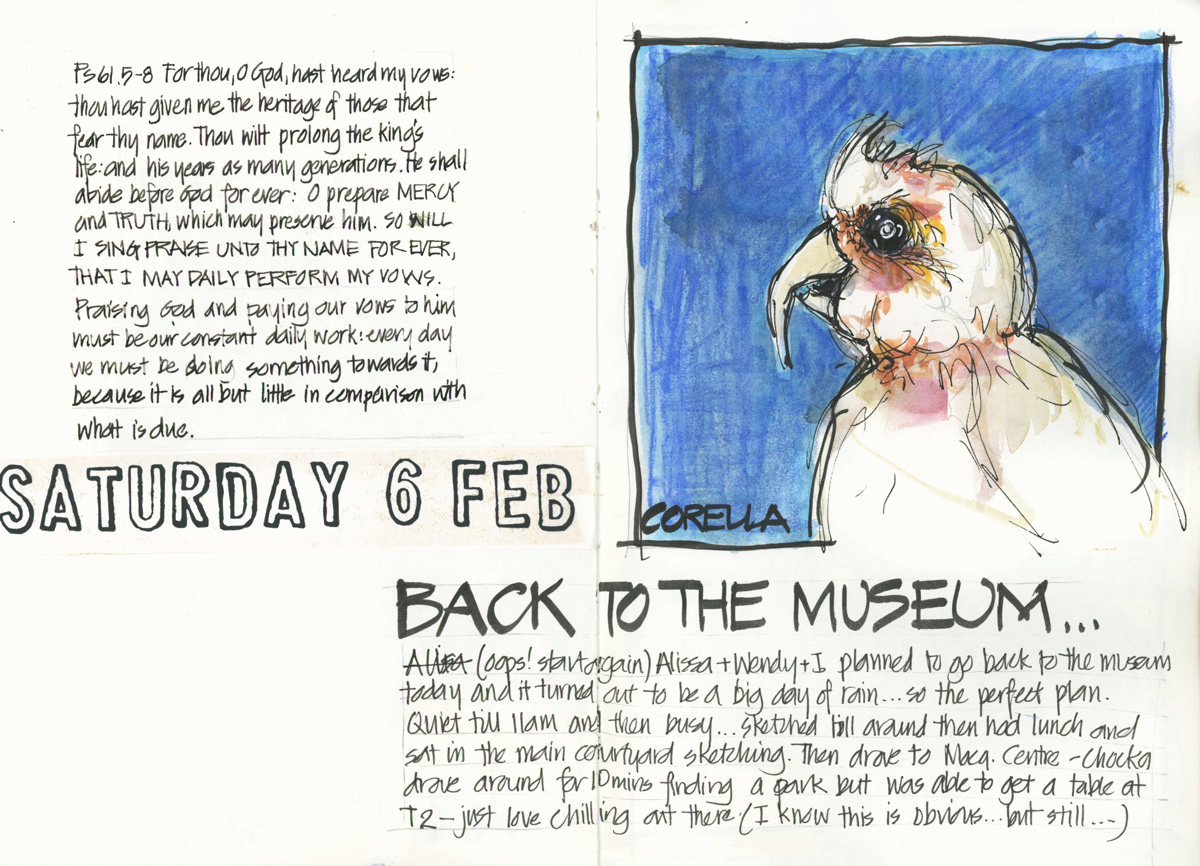 Ps 61.5-8 For thou, O God, hast heard my vows:
thou hast given me the heritage of those that
fear thy name. Thou wilt prolong the king's
life: and his years as many generations. He shall
abide before God for ever: O prepare MERCY
and TRUTH, which may preserve him. SO WILL
I SING PRAISE UNTO THY NAME FOR EVER,
THAT I MAY DAILY PERFORM MY VOWS.
Praising God and paying our vows to him
must be our constant daily work: every day
we must be doing something towards it,
because it is all but little in comparison with
what is due.
SATURDAY 6 FEB
CORELLA
BACK TO THE MUSEUM...
Alissa (oops! start again) Alissa + Wendy + I planned to go back to the museum
today and it turned out to be a big day of rain... so the perfect plan.
Quiet till 11am and then busy... sketched till around then had lunch and
sat in the main courtyard sketching. Then drove to Macq. Centre - Chocka
drove around for 10mins finding a park but was able to get a table at
T2 - just love chilling out there (I know this is obvious... but still...)